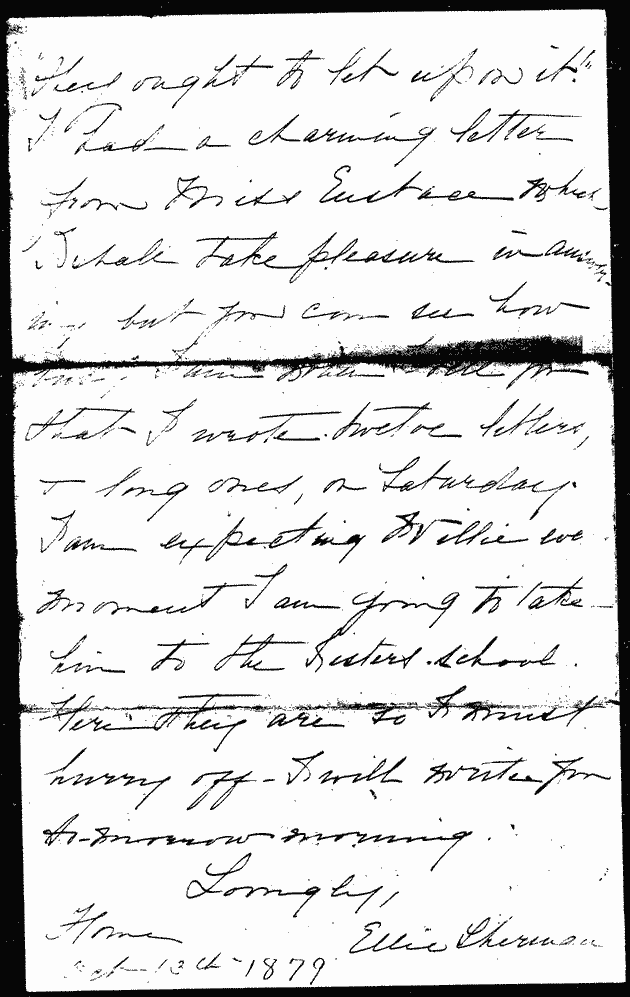 They ought to let up on it."
I had a charming letter
from Miss Eustace which
I shall take pleasure in answer-
ing but you can see how
busy I am when I tell you
that I wrote twelve letters,
& long ones, on Saturday.
I am expecting Willie eve
moment I am going to take
him to the Sisters school.
Here they are so I must
hurry off - I will write you
to-morrow morning.
Lovingly,
Home Ellie Sherman
13th 1879